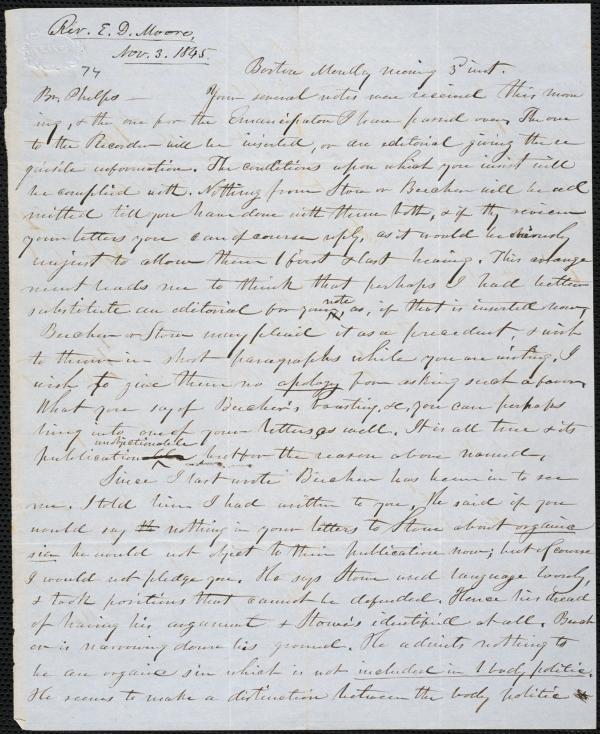 Rev. E. D. Moore,
Nov. 3. 1845.
74
Boston Monday morning 3d inst.
Br. Phelps — Your several notes were received this morn
ing, & the one for the Emancipator I have passed over. The one
to the Recorder will be inserted, or an editorial giving the re
quisite information. The conditions upon which you insist will
be complied with. Nothing from Stowe or Beecher will be ad
mitted till you have done with them both, & if they review
your letters you can of course reply, as it would be
unjust to allow them 1 first & last hearing. This arrange
ment leads me to think that perhaps I had better
substitute an editorial for your note as, if that is inserted now,
Beecher or Stowe may plead it as a precedent, & wish
to throw in short paragraphs while you are writing. I
wish to give them no apology for asking such a favor
What you say of Beecher's boasting, &c, you can perhaps
bring into one of your letters as well. It is all true & its
publication unobjectionable but for the reason above named.
Since I last wrote Beecher has been in to see
me. I told him I had written to you. He said if you
would say nothing in your letters to Stowe about organic
sin he would not object to their publication now; but of course
I would not pledge you. He says Stowe used language loosely,
& took positions that cannot be defended. Hence his dread
of having his argument & Stowe's identified at all. Beech
er is narrowing down his ground. He admits nothing to
be an organic sin which is not included in 1 body politic.
He seems to make a distinction between the body politic &